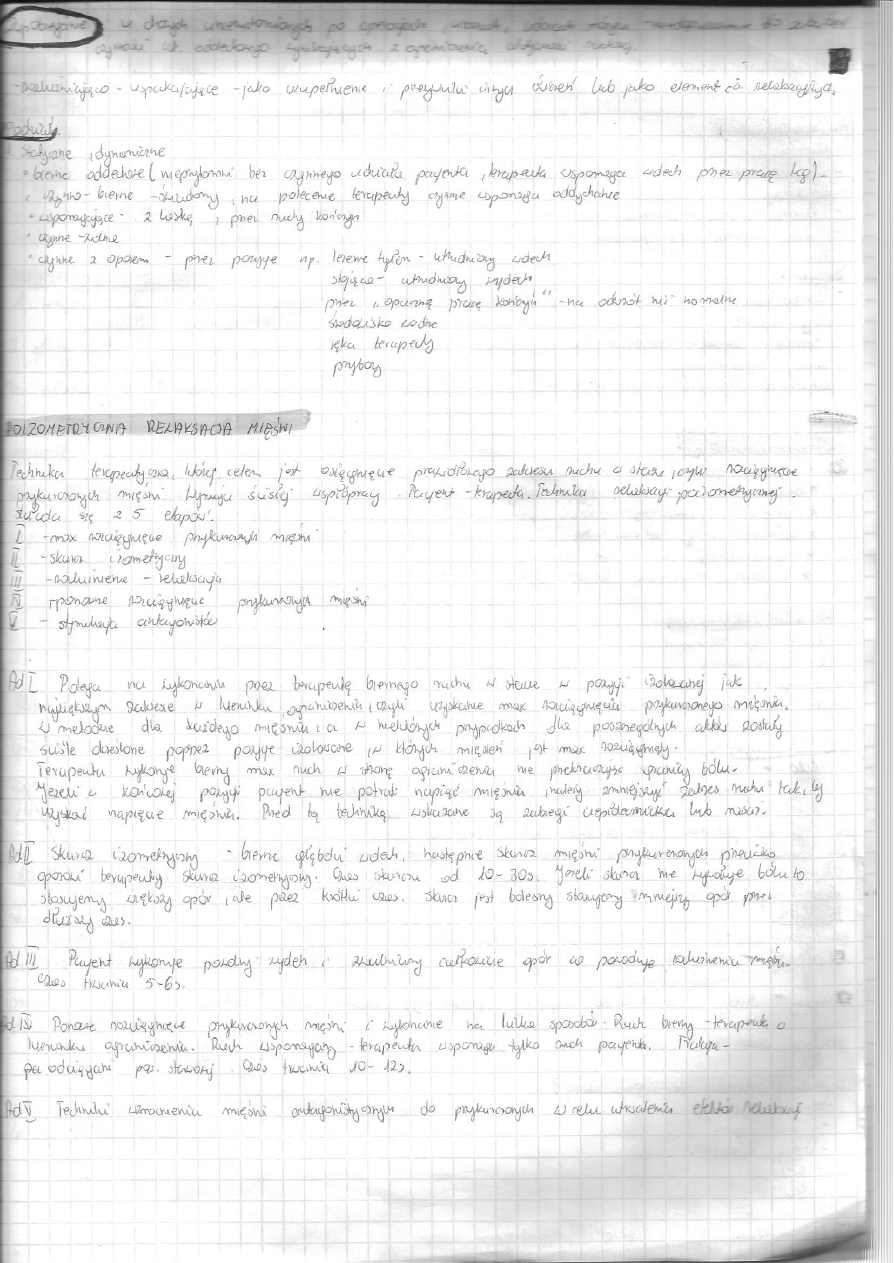 Zapobiegawcze u chorych unieruchomionych po operacjach, urazach,
czynności ukł. oddechowego wynikających z ograniczenia aktywności ruchowej.
-rozluźniająco - uspokajające - jako uzupełnienie i przerywniki innych ćwiczeń lub jako element ćw. relaksacyjnych.
Podział:
Statyczne i dynamiczne
• bierne oddechowe (nieprzytomni bez czynnego udziału pacjenta, terapeuta wspomaga wdech przez pracę kg) -
• czynno-bierne - świadomy, na polecenie terapeuty czynne wspomaga oddychanie
• wspomagające - z laską, przez ruchy kończyn
• czynne - wolne
• czynne z oporem - przez pozycje np. leżenie tyłem - utrudniony wdech
stojąca - utrudniony wydech
przez „oporczną pracę kończyn" - na odwrót niż normalne
środowisko wodne
ręka terapeuty
przybory
POIZOMETRYCZNA RELAKSACJA MIĘŚNI
Technika terapeutyczna, której celem jest osiągnięcie prawidłowego zakresu ruchu w stawie, czyli rozciągnięcie
przykurczonych mięśni. Wymaga ścisłej współpracy Pacjent - terapeuta. Technika relaksacji poizometrycznej
składa się z 5 etapów.
I - max rozciągnięcie przykurczonych mięśni
II - skurcz izometryczny
III - rozluźnienie - relaksacja
IV - ponowne rozciągnięcie przykurczonych mięśni
V - stymulacja antagonistów
Ad I Polega na wykonaniu przez terapeutę biernego ruchu w stawie w pozycji izolowanej jak
największym zakresie w kierunku ograniczenia, czyli uzyskanie max rozciągnięcia przykurczonego mięśnia.
W metodzie dla każdego mięśnia, a w niektórych przypadkach dla poszczególnych aktów zostały
ściśle określone poprzez pozycje izolowane, w których mięsień jest max rozciągnięty.
Terapeuta wykonuje bierny max ruch w stronę ograniczenia nie przekraczając granicy bólu.
Jeżeli w końcowej pozycji pacjent nie potrafi napiąć mięśnia, należy zmniejszyć zakres ruchu tak, by
uzyskać napięcie mięśnia. Przed tą techniką wskazane są zabiegi ciepłolecznicze lub masaż.
Ad II Skurcz izometryczny - bierne głęboki wdech, następnie skurcz mięśni przykurczonych przeciwko
oporowi terapeuty skurcz izometryczny. Czas skurczu od 10-30s. Jeżeli skurcz nie wywołuje bólu to
stosujemy większy opór, ale przez krótki czas. Skurcz jest bolesny stosujemy mniejszy opór przez
dłuższy czas.
Ad III Pacjent wykonuje powolny wydech i zwalniamy całkowicie opór co powoduje rozluźnienie mięśni.
Czas trwania 5-6s.
Ad IV Ponowne rozciągnięcie przykurczonych mięśni i wykonanie na kilka sposobów. Ruch bierny - terapeuta w
kierunku ograniczenia. Ruch wspomagany - terapeuta wspomaga tylko ruch pacjenta. Trakcja -
pow. stawowej. Czas trwania 10-12s.
Ad V Techniki wzmocnienia mięśni antagonistycznych do przykurczonych w celu utrwalenia efektów relaksacji